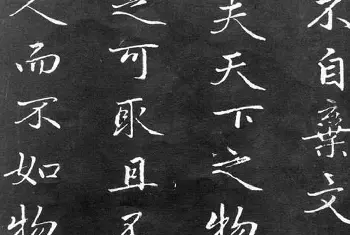 不自棄文
夫天下之物
之可取且不
人而不如物